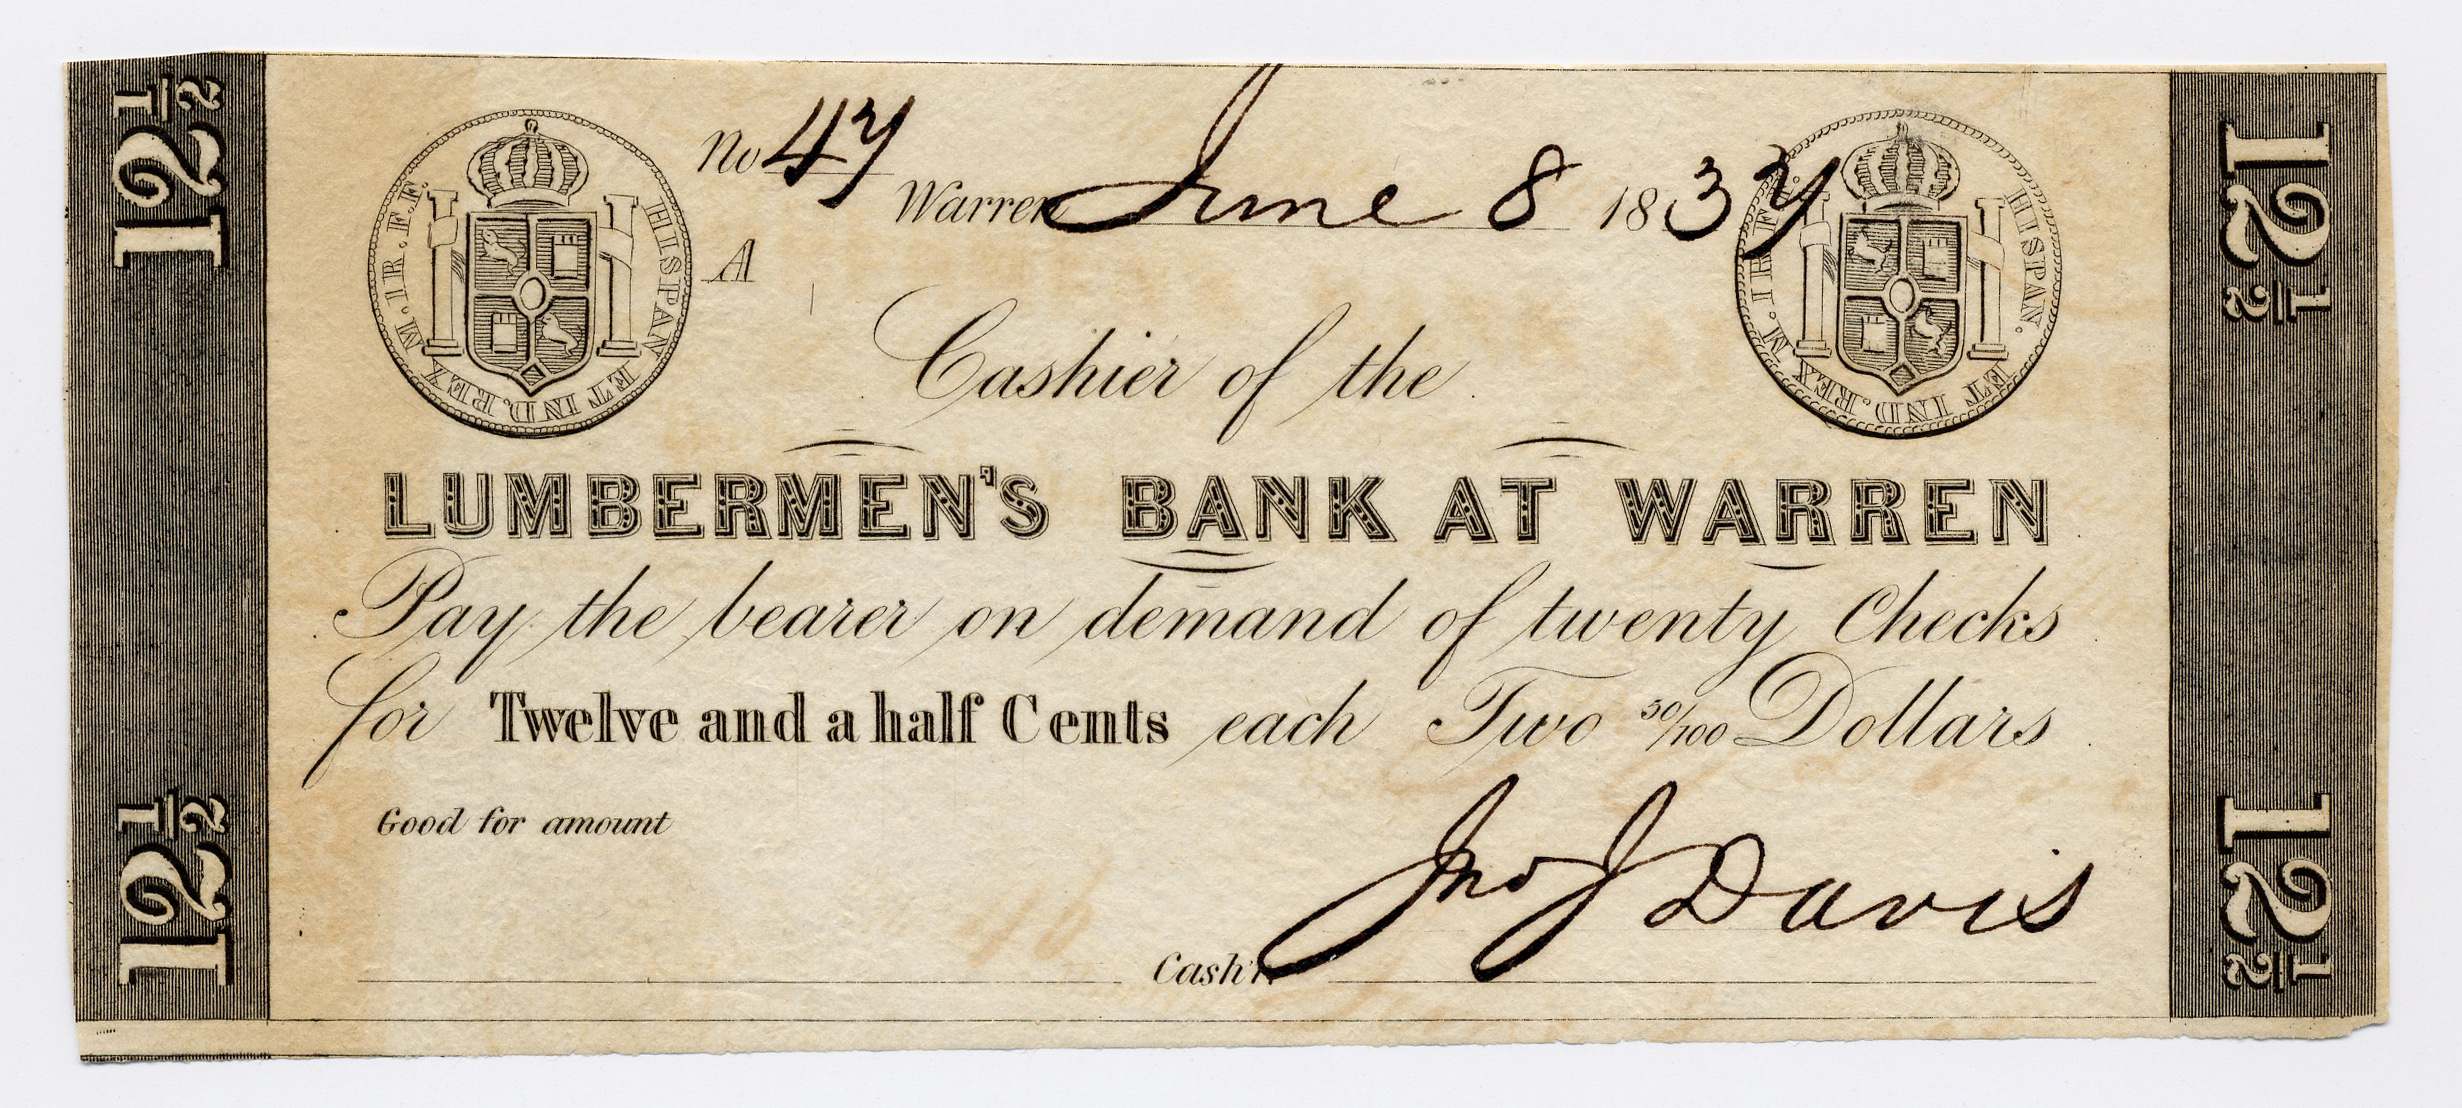 12 1/2
12 1/2
No 47
Warren June 8 1837
A
HISPAN. ET IND. REX M. I R. F. F.
HISPAN. ET IND. REX M. I R. F.
Cashier of the
LUMBERMEN'S BANK AT WARREN
Pay the bearer on demand of twenty Checks
for Twelve and a half Cents each Two 50/100 Dollars
Good for amount
Jno J Davis
Cash'r
12 1/2
12 1/2